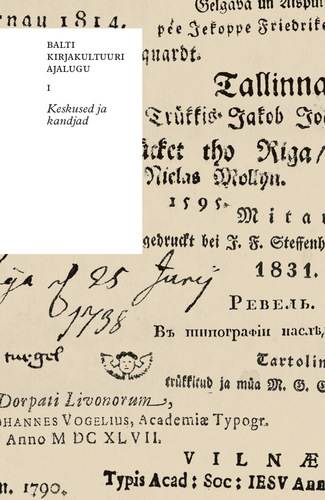 rnau 1814.
Gelgava un Aispu
pée Jekoppe Friedrike
BALTI
KIRJAKULTUURI
AJALUGU
I
Keskused ja
kandjad
quardt.
Tallinna
Trükkis Jakob Jo
ücket tho Riga/
Niclas Mollyn.
1595.
Mitau
gedruckt bei J. F. Steffenh
1831.
25 Junij
1738
РЕВЕЛЬ.
Въ типографіи наслѣ
turgel
Tartolin
trükkitud ja müa M. G. G
Dorpati Livonorum,
OHANNES VOGELIUS, Academiæ Typogr.
Anno M DC XLVII.
VILNÆ
Typis Acad: Soc: IESV Ann
n. 1790.